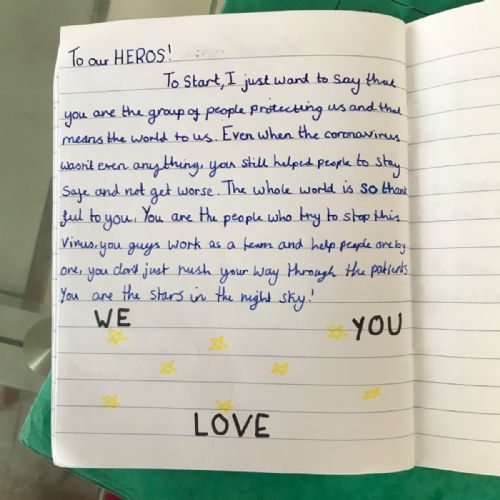 To our HEROS!
To start, I just want to say that
you are the group of people protecting us and that
means the world to us. Even when the coronavirus
wasn't even anything, you still helped people to stay
safe and not get worse. The whole world is so thank
ful to you. You are the people who try to stop this
virus, you guys work as a team and help people one by
one, you don't just rush your way through the patients.
You are the stars in the night sky!
WE
YOU
LOVE